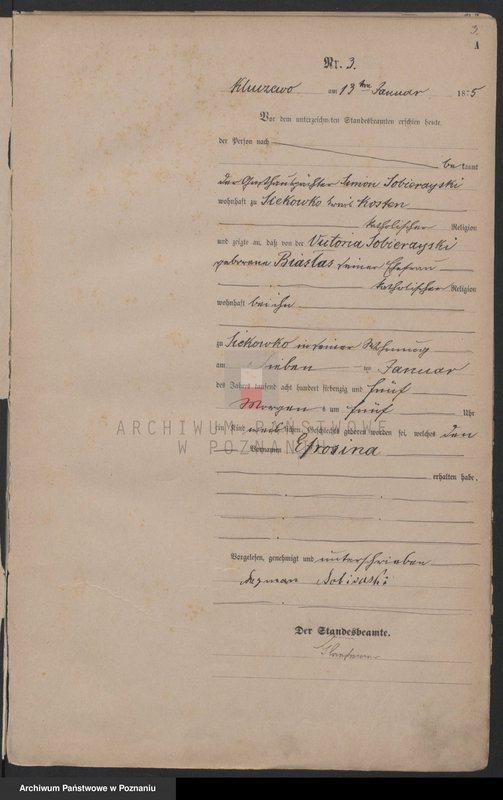 3.
A
Nr. 3.
Kluczewo am 13ten Januar 1875
Vor dem unterzeichneten Standesbeamten erschien heute,
der Person nach
bekannt
der Gasthauspächter Simon Sobierayski
wohnhaft zu Siekowko Kreis Kosten
katholischer Religion
und zeigte an, daß von der Victoria Sobierayski
geborene Biastas seiner Ehefrau
katholischer Religion
wohnhaft bei ihm
zu Siekowko in seiner Wohnung
am sieben ten Januar
des Jahres tausend acht hundert siebenzig und fünf
Morgens um fünf Uhr
ein Kind weiblichen Geschlechts geboren worden sei, welches den
Vornamen Efrosina
erhalten habe.
Vorgelesen, genehmigt und unterschrieben
Der Standesbeamte.
ARCHIWUM PAŃSTWOWE
W POZNANIU
Archiwum Państwowe w Poznaniu